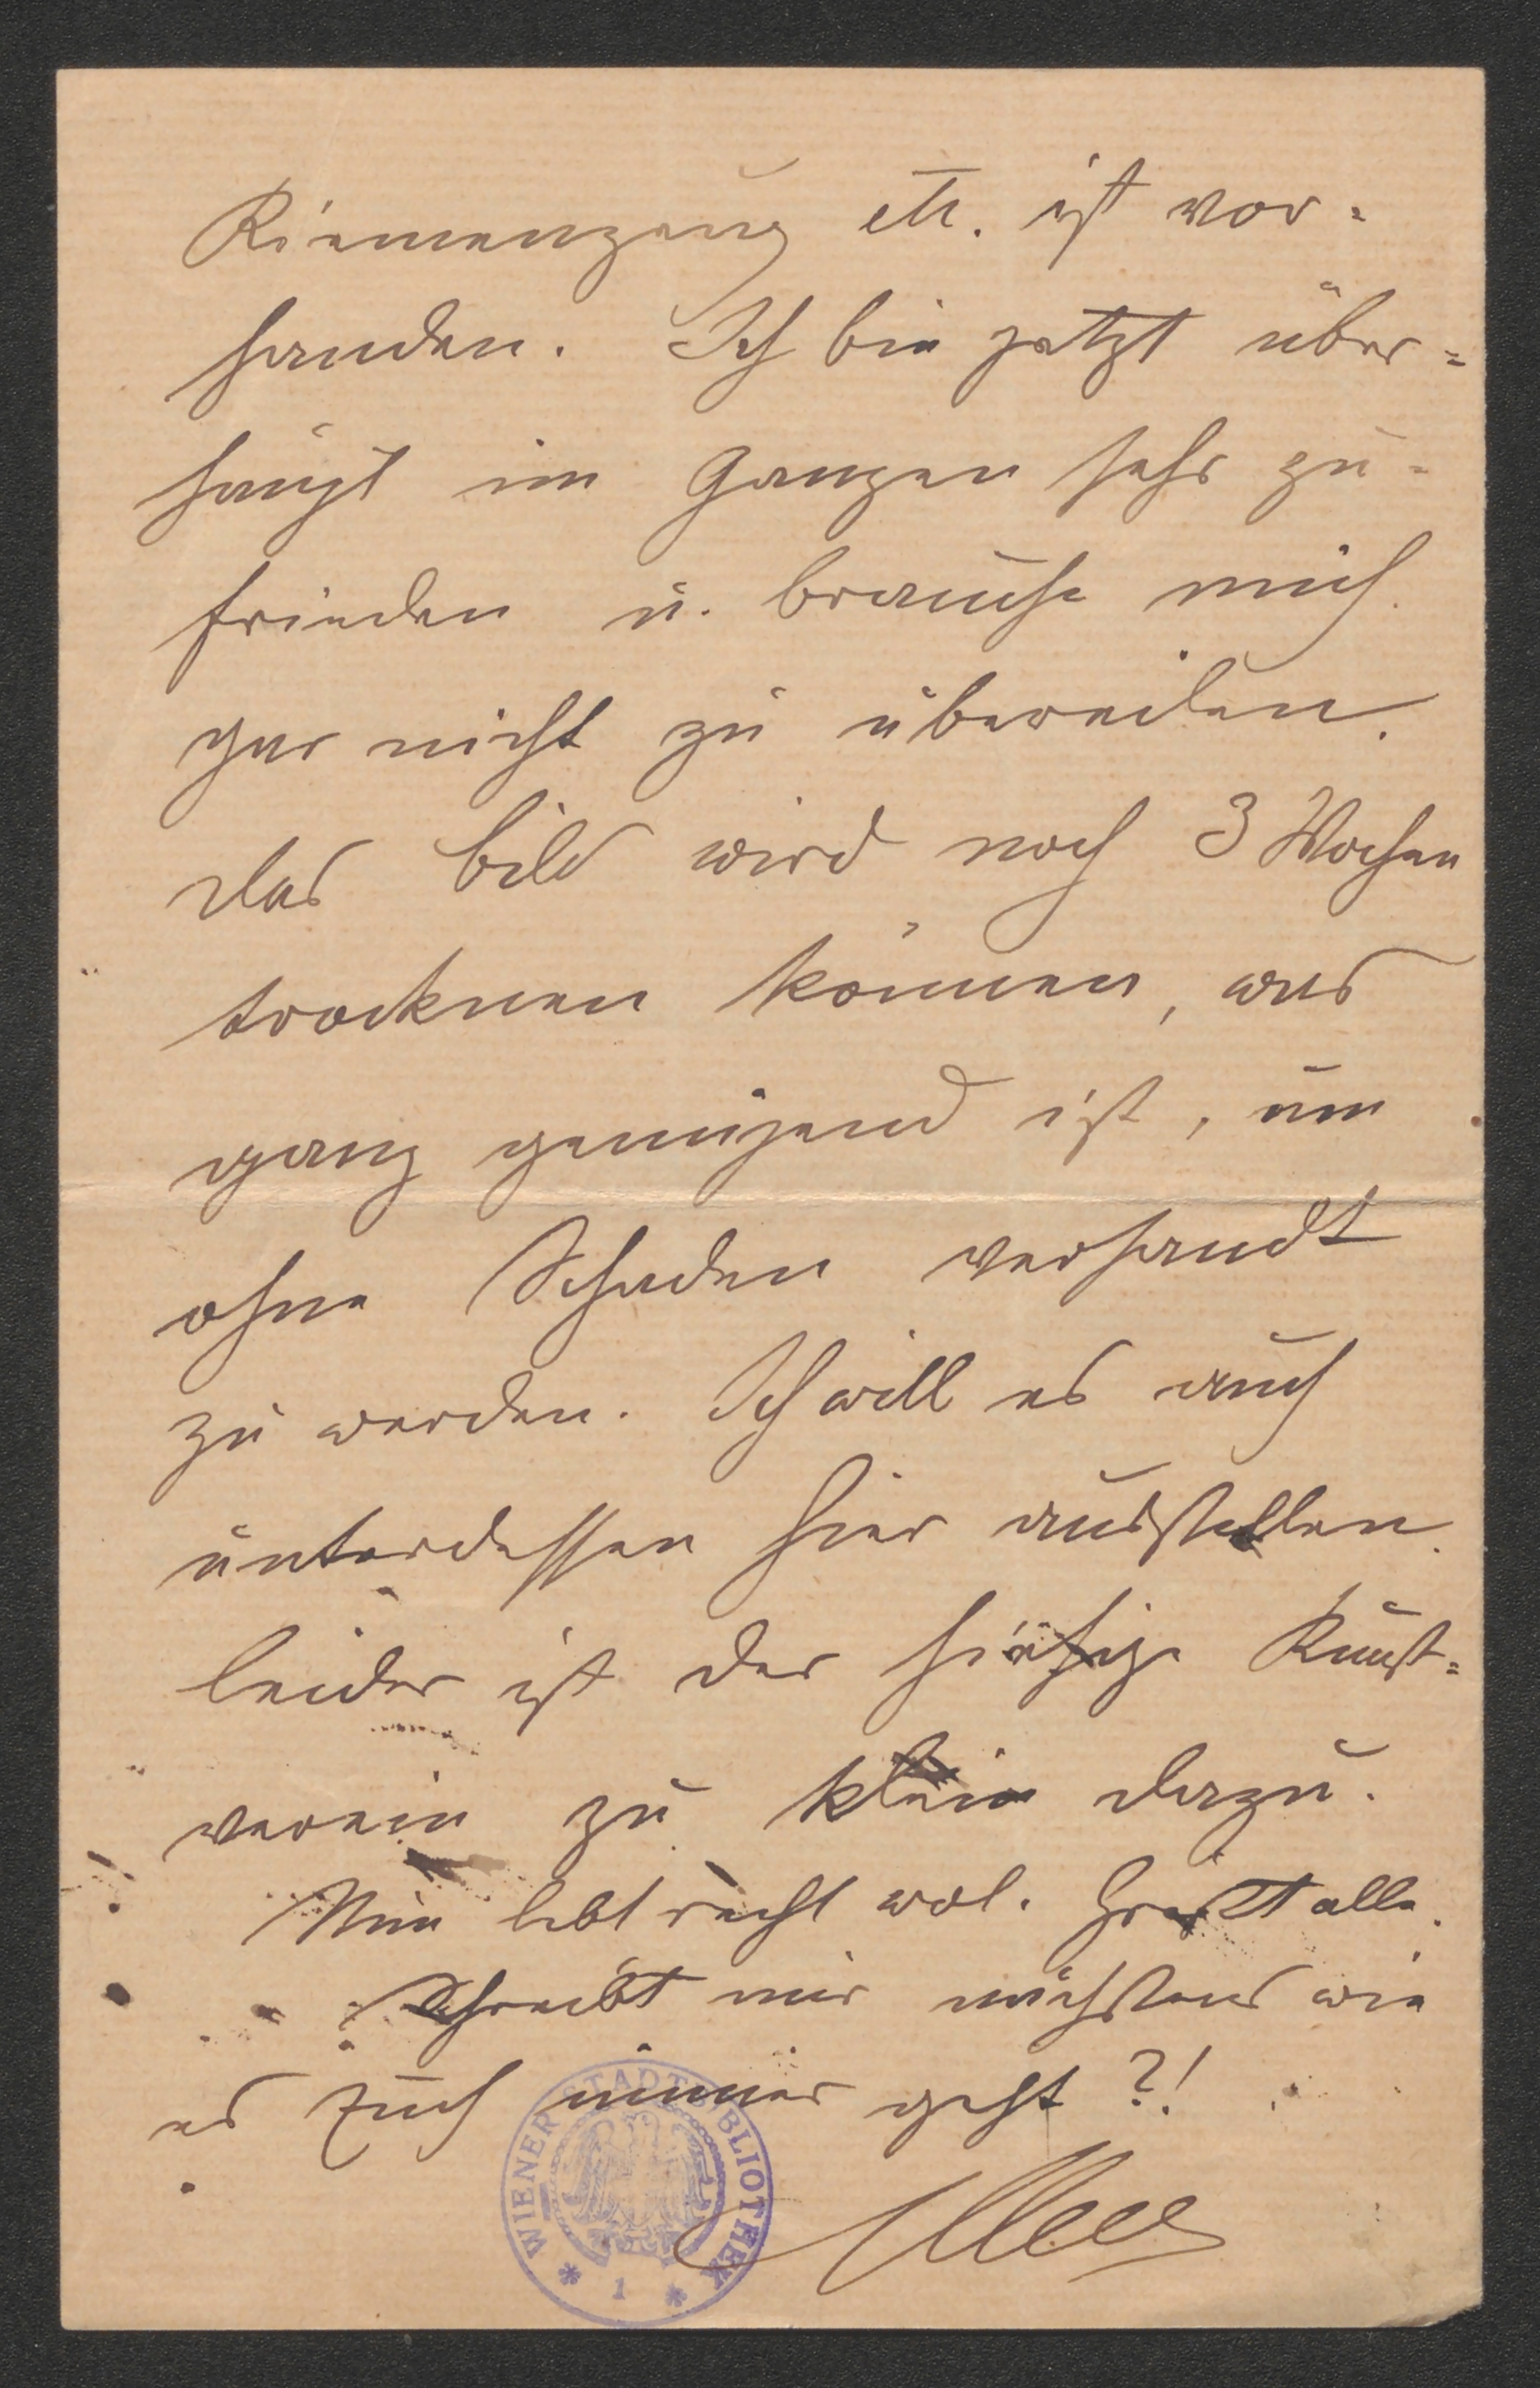 Riemenzeug etc. ist vor=
handen. Ich bin jetzt über=
haupt im Ganzen sehr zu=
frieden u. brauche mich
gar nicht zu übereilen.
Das Bild wird noch 3 Wochen
trocknen können, was
ganz genügend ist, um
ohne Schaden versandt
zu werden. Ich will es auch
unterdessen hier ausstellen.
Leider ist der hiesige Kunst=
verein zu klein dazu.
Nun lebt recht wol. Grüßt alle.
Schreibt mir nächstens wie
es Euch immer geht?!
WIENER STADTBIBLIOTHEK
* 1 *